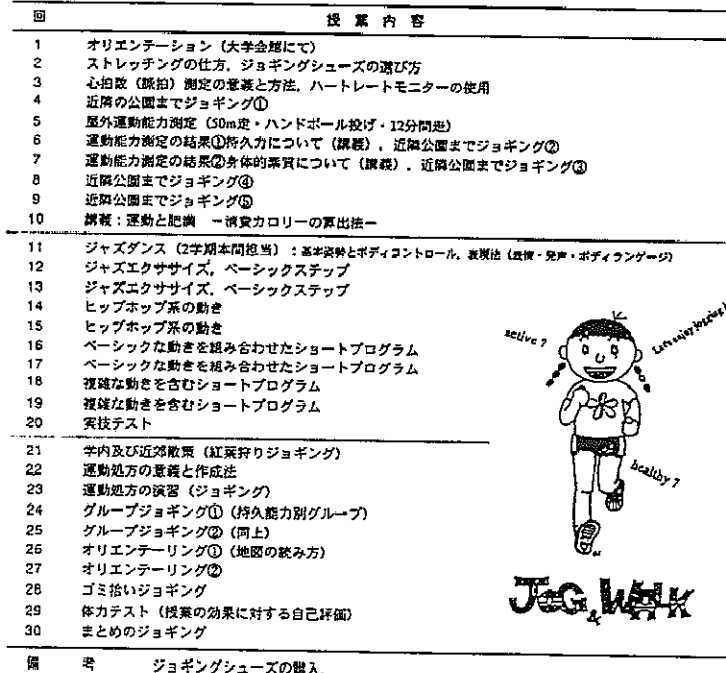 回 授業内容
1 オリエンテーション（大学会館にて）
2 ストレッチングの仕方，ジョギングシューズの選び方
3 心拍数（脈拍）測定の意義と方法，ハートレートモニターの使用
4 近隣の公園までジョギング①
5 屋外運動能力測定（50m走・ハンドボール投げ・12分間走）
6 運動能力測定の結果①持久力について（講義），近隣公園までジョギング②
7 運動能力測定の結果②身体的素質について（講義），近隣公園までジョギング③
8 近隣公園までジョギング④
9 近隣公園までジョギング⑤
10 講義：運動と肥満 －消費カロリーの算出法－
11 ジャズダンス（2学期本間担当）：基本姿勢とボディコントロール，表現法（表情・発声・ボディランゲージ）
12 ジャズエクササイズ，ベーシックステップ
13 ジャズエクササイズ，ベーシックステップ
14 ヒップホップ系の動き
15 ヒップホップ系の動き
16 ベーシックな動きを組み合わせたショートプログラム
17 ベーシックな動きを組み合わせたショートプログラム
18 複雑な動きを含むショートプログラム
19 複雑な動きを含むショートプログラム
20 実技テスト
active ?
Let's enjoy jogging !
healthy ?
21 学内及び近郊散策（紅葉狩りジョギング）
22 運動処方の意義と作成法
23 運動処方の演習（ジョギング）
24 グループジョギング①（持久能力別グループ）
25 グループジョギング②（同上）
26 オリエンテーリング①（地図の読み方）
27 オリエンテーリング②
28 ゴミ拾いジョギング
29 体力テスト（授業の効果に対する自己評価）
30 まとめのジョギング
JOG & WALK
備考 ジョギングシューズの購入．